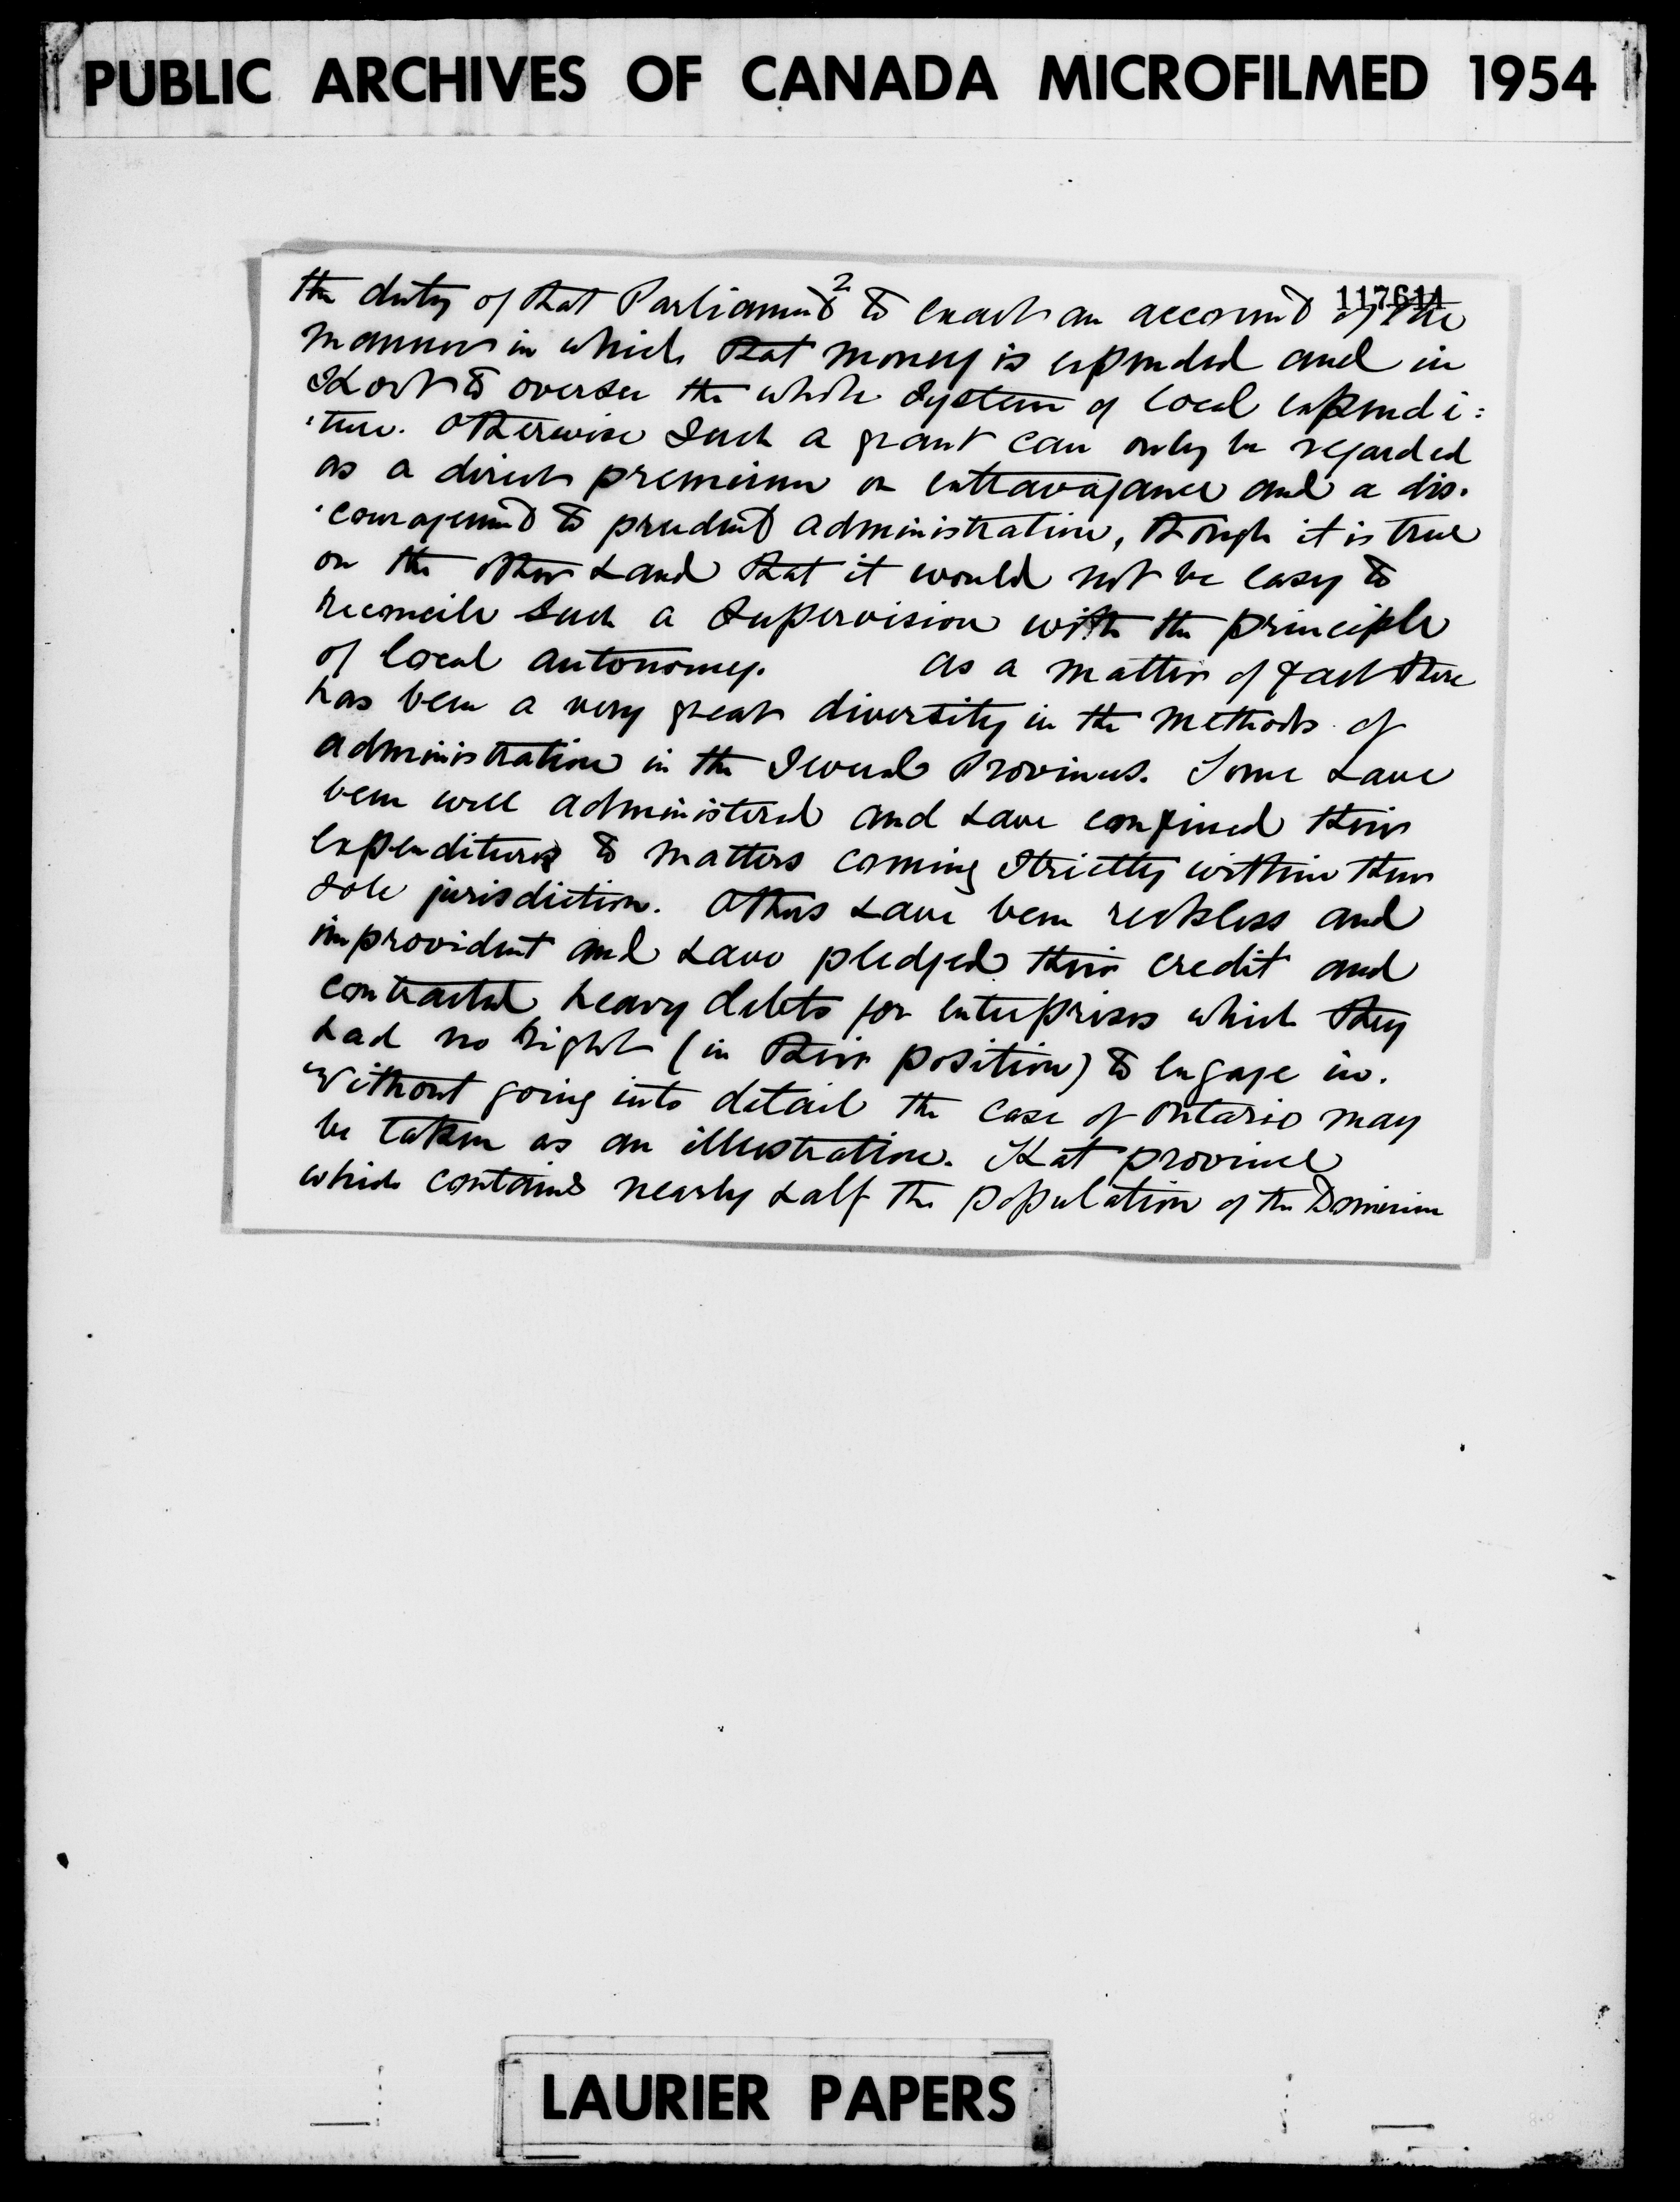 PUBLIC ARCHIVES OF CANADA MICROFILMED 1954
2
117611
the duty of that Parliament to exact an account of the
manner in which that money is expended and in
short to oversee the whole system of local expendi:
:ture. Otherwise such a grant can only be regarded
as a direct premium on extravagance and a dis.
:couragement to prudent administration, though it is true
on the other hand that it would not be easy to
reconcile such a supervision with the principle
of local autonomy. As a matter of fact there
has been a very great diversity in the methods of
administration in the several Provinces. Some have
been well administered and have confined their
expenditures to matters coming strictly within their
sole jurisdiction. Others have been reckless and
improvident and have pledged their credit and
contracted heavy debts for enterprises which they
had no right (in their position) to engage in.
Without going into detail the case of Ontario may
be taken as an illustration. That province
which contains nearly half the population of the Dominion
LAURIER PAPERS